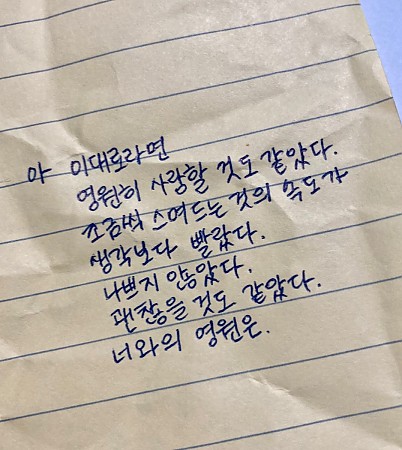 아 이대로라면
영원히 사랑할 것도 같았다.
조금씩 스며드는 것의 속도가
생각보다 빨랐다.
나쁘지 않았다.
괜찮을 것도 같았다.
너와의 영원은.